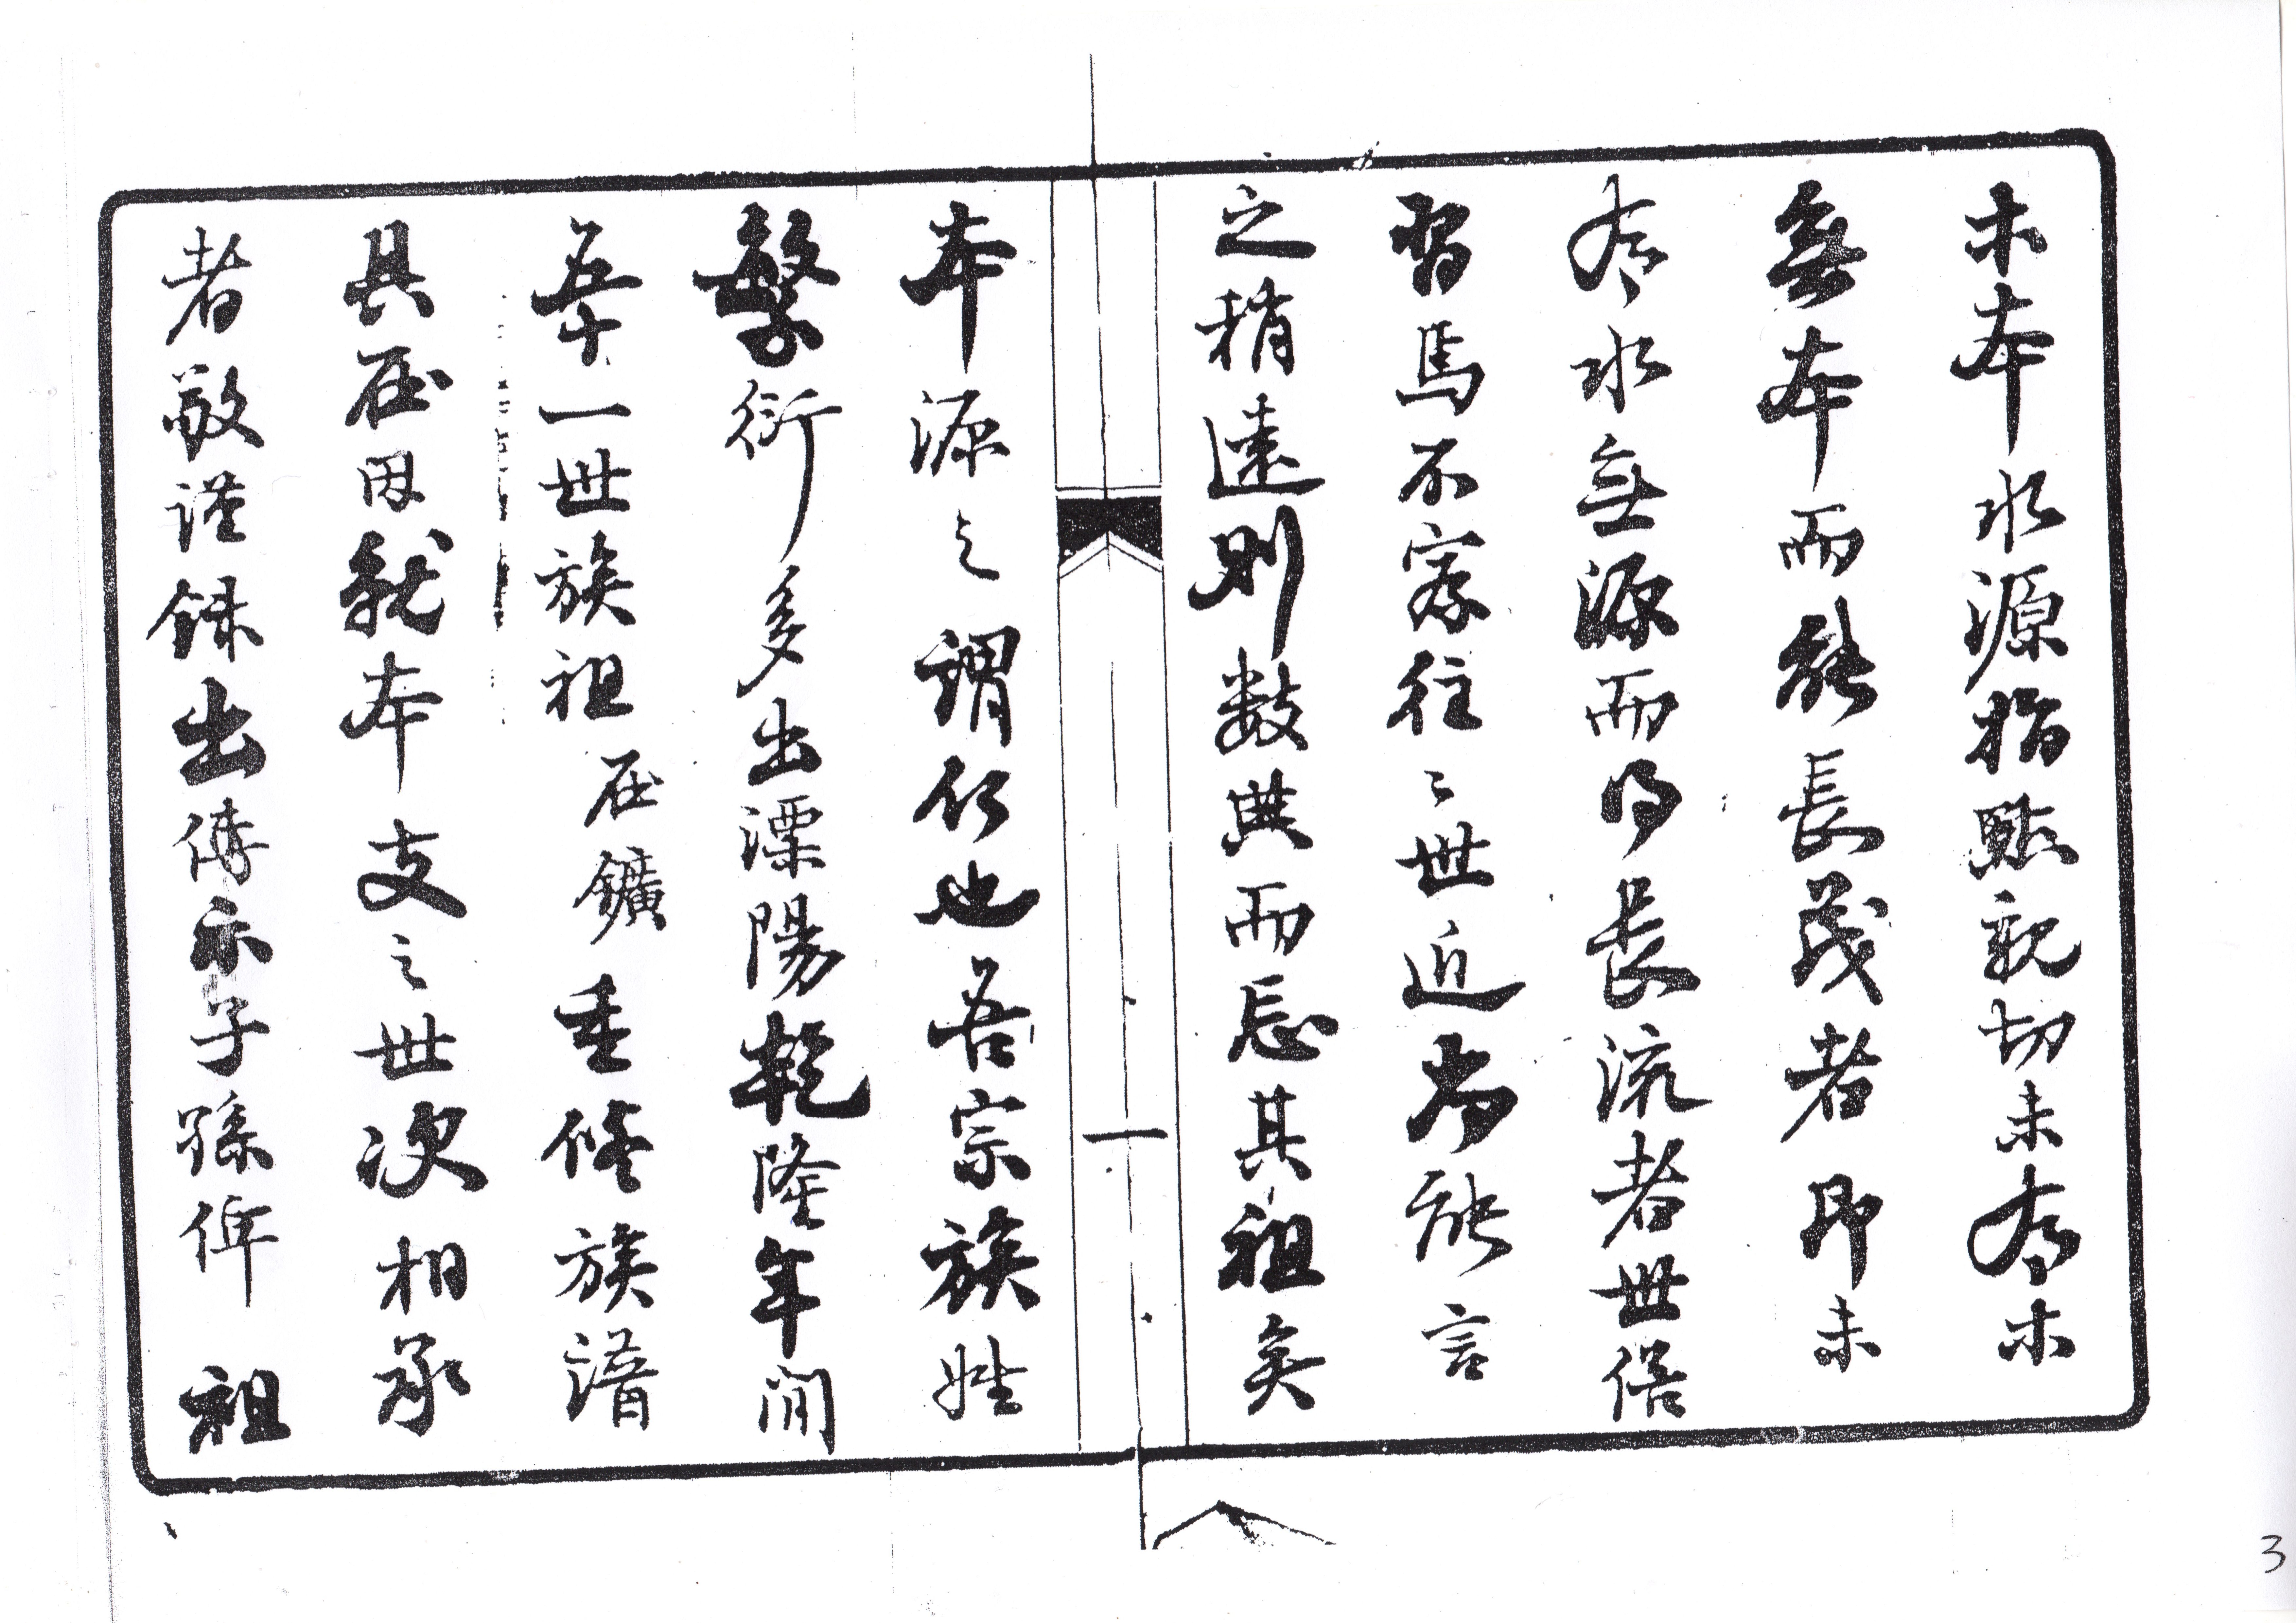 木本水源指點親切未有木
無本而能長茂者即未
有水無源而得長流者世俗
習焉不察往々世近尚能言
之稍遠則數典而忘其祖矣
一
本源之謂何也吾宗族姓
繁衍多出溧陽乾隆年間
五十一世族祖在鑛重修族譜
具在因就本支之世次相承
者敬謹錄出傳示子孫俾 祖
3